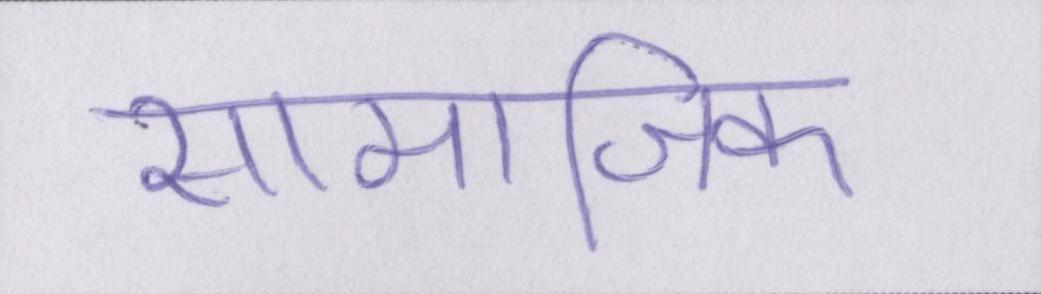 सामाजिक